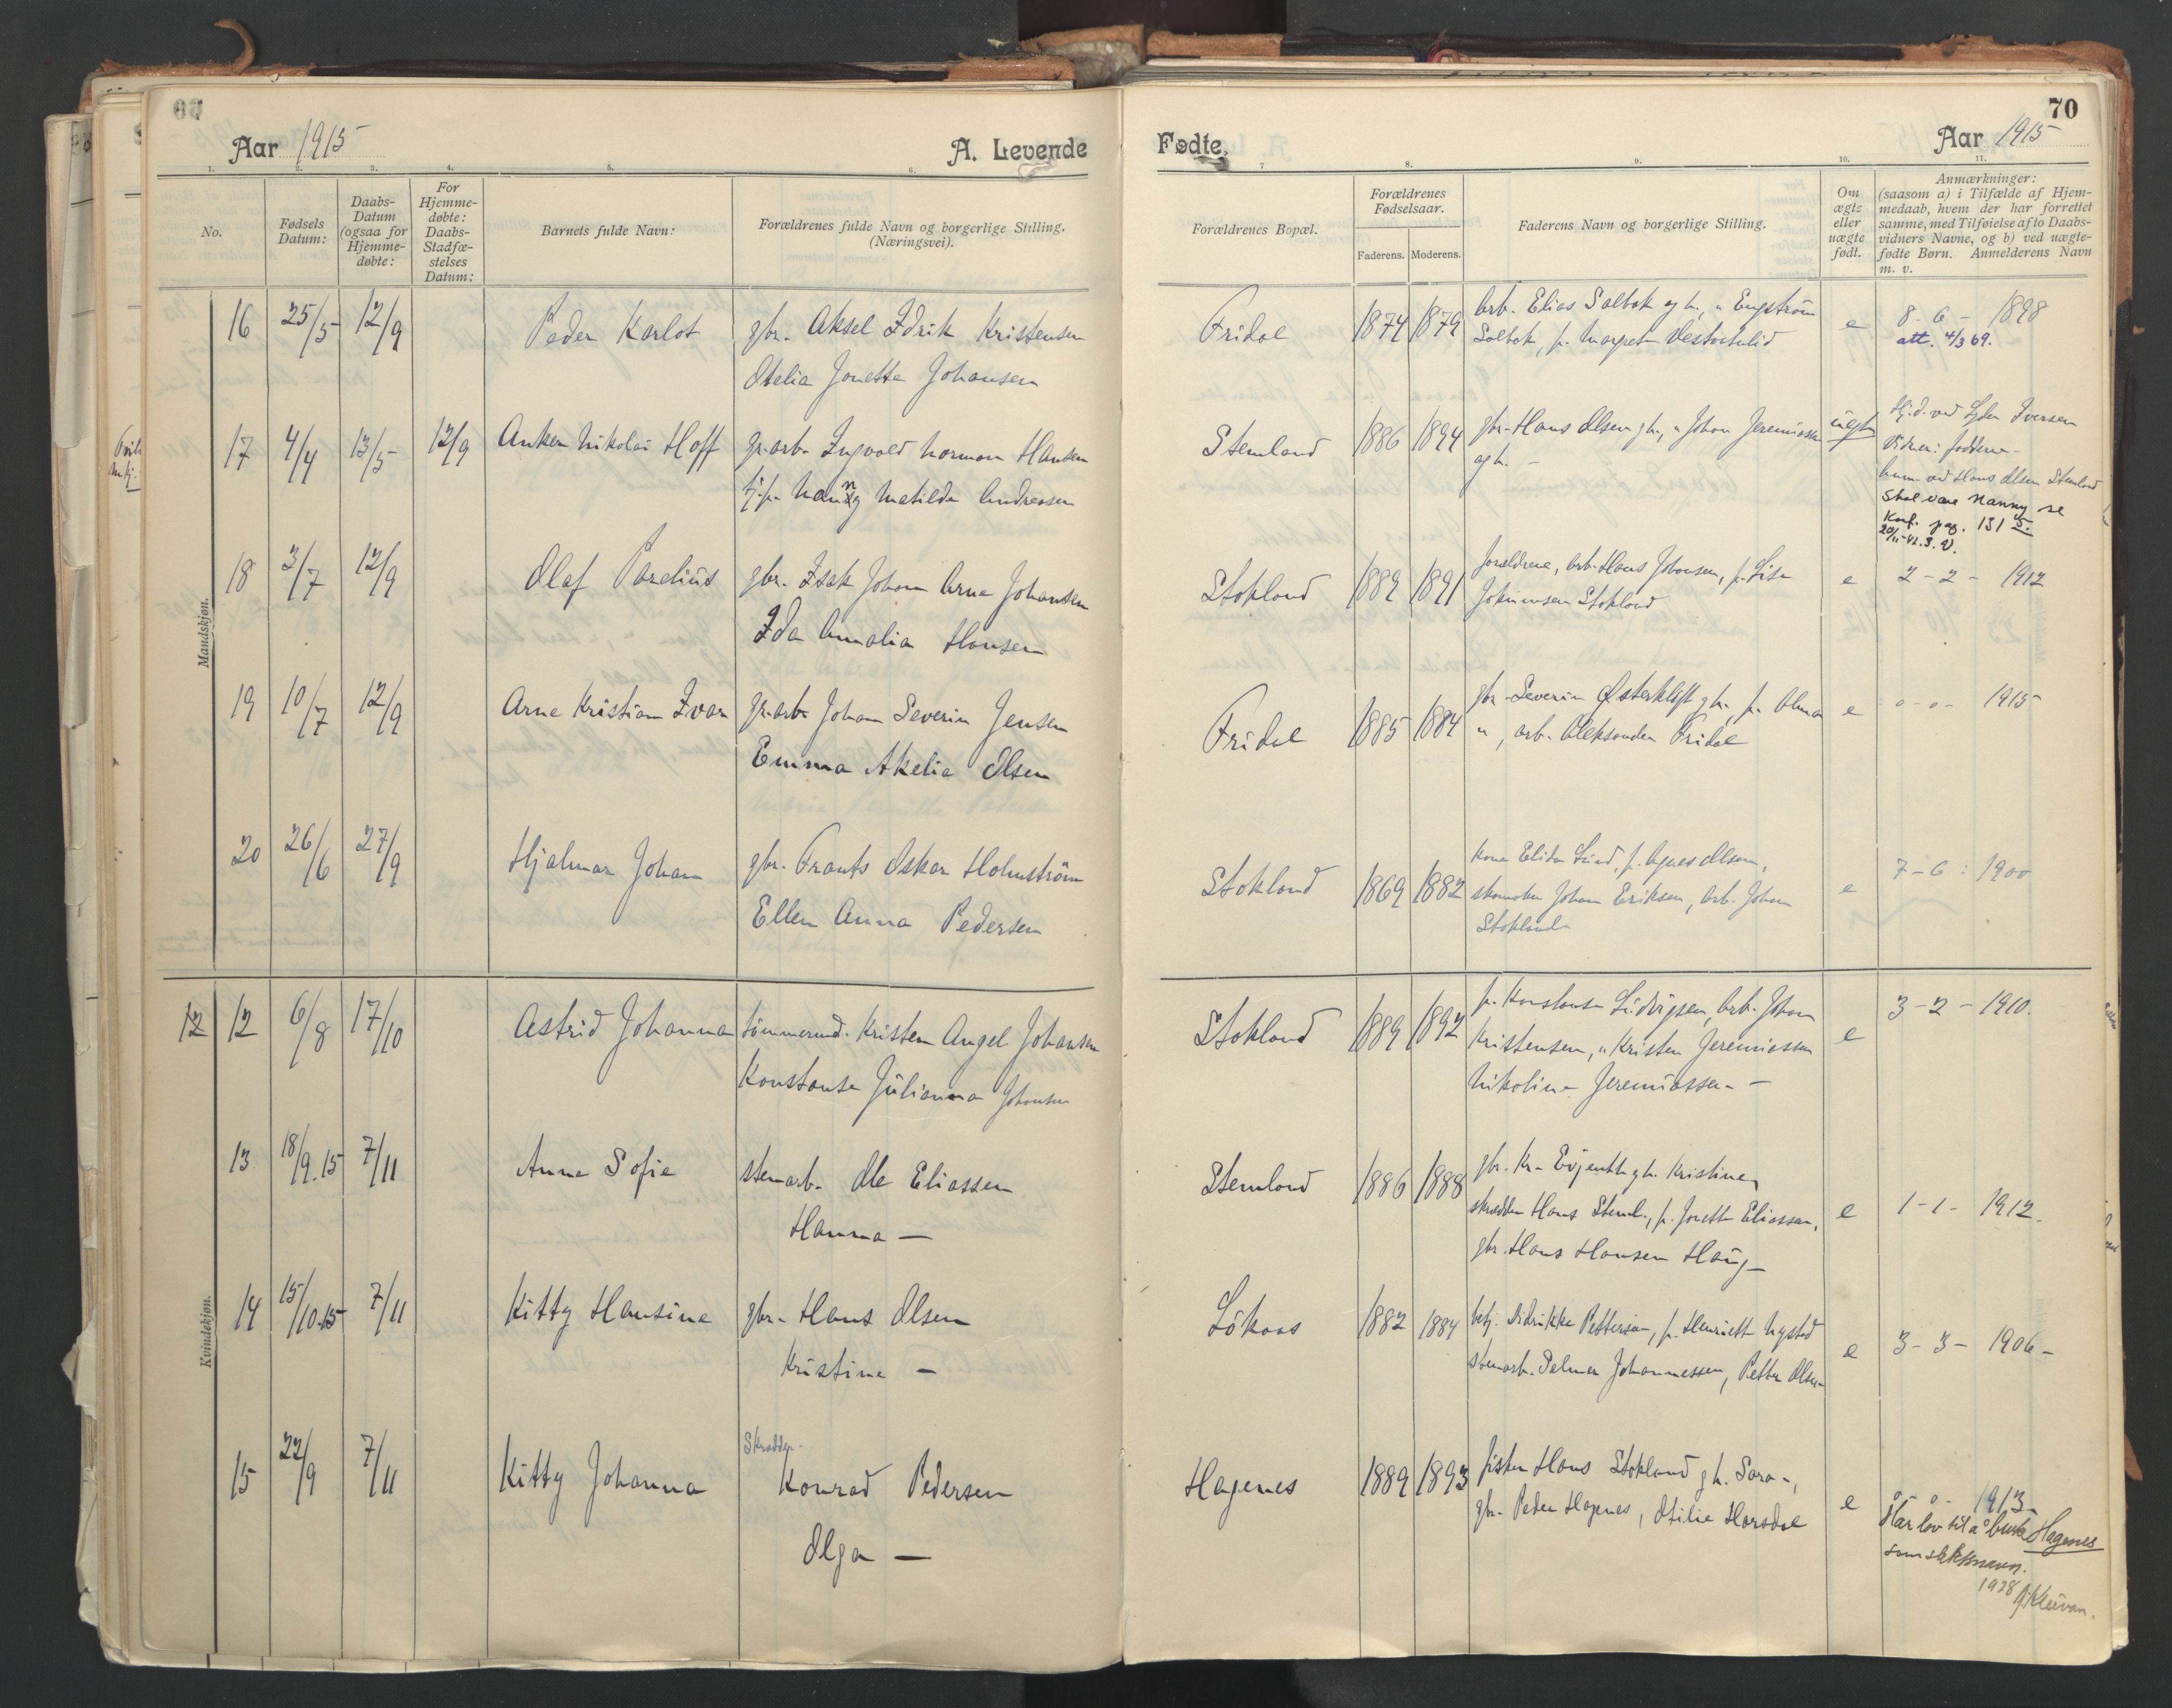 70
Aar 1915
A. Levende
Fødte.
Aar 1915
1.
2.
3.
4.
5.
6.
7
8.
9.
10.
11.
No.
Fødsels Datum:
Daabs-Datum (ogsaa for Hjemme-døbte:
For Hjemme-døbte: Daabs-Stadfæ-stelses Datum:
Barnets fulde Navn:
Forældrenes fulde Navn og borgerlige Stilling. (Næringsvei).
Forældrenes Bopæl.
Forældrenes Fødselsaar.
Faderens.
Moderens.
Faderens Navn og borgerlige Stilling.
Om ægte eller uægte født.
Anmærkninger:
(saasom a) i Tilfælde af Hjem-
medaab, hvem der har forrettet
samme, med Tilføielse af to Daabs-
vidners Navne, og b) ved uægte-
fødte Børn. Anmelderens Navn
m. v.
Mandskjøn.
16 25/5 12/9 Peder Karlot gbr. Aksel Edrik Kristensen
Otelia Jonette Johansen
Fridal 1874 1879 arb. Elias Salbak og h., " Engström
Salbak, p. Margret
e 8-6- 1898
att. 4/3 69.
17 4/4 13/5 12/9 Anker Nikolai Hoff gr.arb. Ingvald Norman Hansen
tj.p. Nanny Matilde Andreasen
Stemland 1886 1894 gbr. Hans Olsen gh., " Johan Jeremiassen
og h. -
uegte
Hj.d. ved Iversen
Vidner: fadderne-
anm. ved Hans Olsen Stemland
Skal være Nanny se
Konf. pag. 131 5.
20/11-42. S. V.
18 3/7 12/9 Olaf Parelius gbr. Isak Johan Arne Johansen
Ida Amalia Hansen
Stokland 1889 1891 foreldrene, arb. Hans Johansen, p. Lise
Johansen Stokland
e 2-2- 1912
19 10/7 12/9 Arne Kristian Ivar gr.arb. Johan Severin Jensen
Emma Akelia Olsen
Fridal 1885 1884 gbr. Severin Østerkløft gh., p. Alma
", arb. Aleksander Fridal
e 0-0- 1915
20 26/6 27/9 Hjalmar Johan gbr. Frants Oskar Holmström
Ellen Anna Pedersen
Stokland 1869 1882 kone Elida Lind, p. Agnes Olsen,
skomaker Johan Eriksen, arb. Johan
Stokland
e 7-6: 1900
Kvindekjøn.
12 12 6/8 17/10 Astrid Johanna tømmermd. Kristen Angel Johansen
Konstanse Julianna Johansen
Stokland 1889 1892 p. Konstanse Ludvigsen, arb. Johan
Kristensen, " Kristen Jeremiassen
Nikoline Jeremiassen -
e 3-2-1910.
13 18/9.15 7/11 Anna Sofie stenarb. Ole Eliassen
Hanna -
Stemland 1886 1888 gbr. Kr. Evjenth gh. Kristine,
skredder Hans Steml., p. Jonette Eliassen,
gbr. Hans Hansen Haug
e 1-1- 1912.
14 15/10.15 7/11 Kitty Hansine gbr. Hans Olsen
Kristine -
Løkaas 1882 1884 betj. Didrikke Pettersen, p. Henriette Nystad
stenarb. Pelmer Johannessen, Petter Olsen
e 3-3- 1906-
15 22/9 7/11 Kitty Johanna Skredder.
Konrad Pedersen
Olga -
Hagenes 1889 1893 fisker Hans Stokland gh. Sara-,
gbr. Peder Hagenes, Otilie Harsdal
e 0- 0- 1913-
Har lov til å bruke Hagenes
som slektsnavn.
1938 Kleivan.